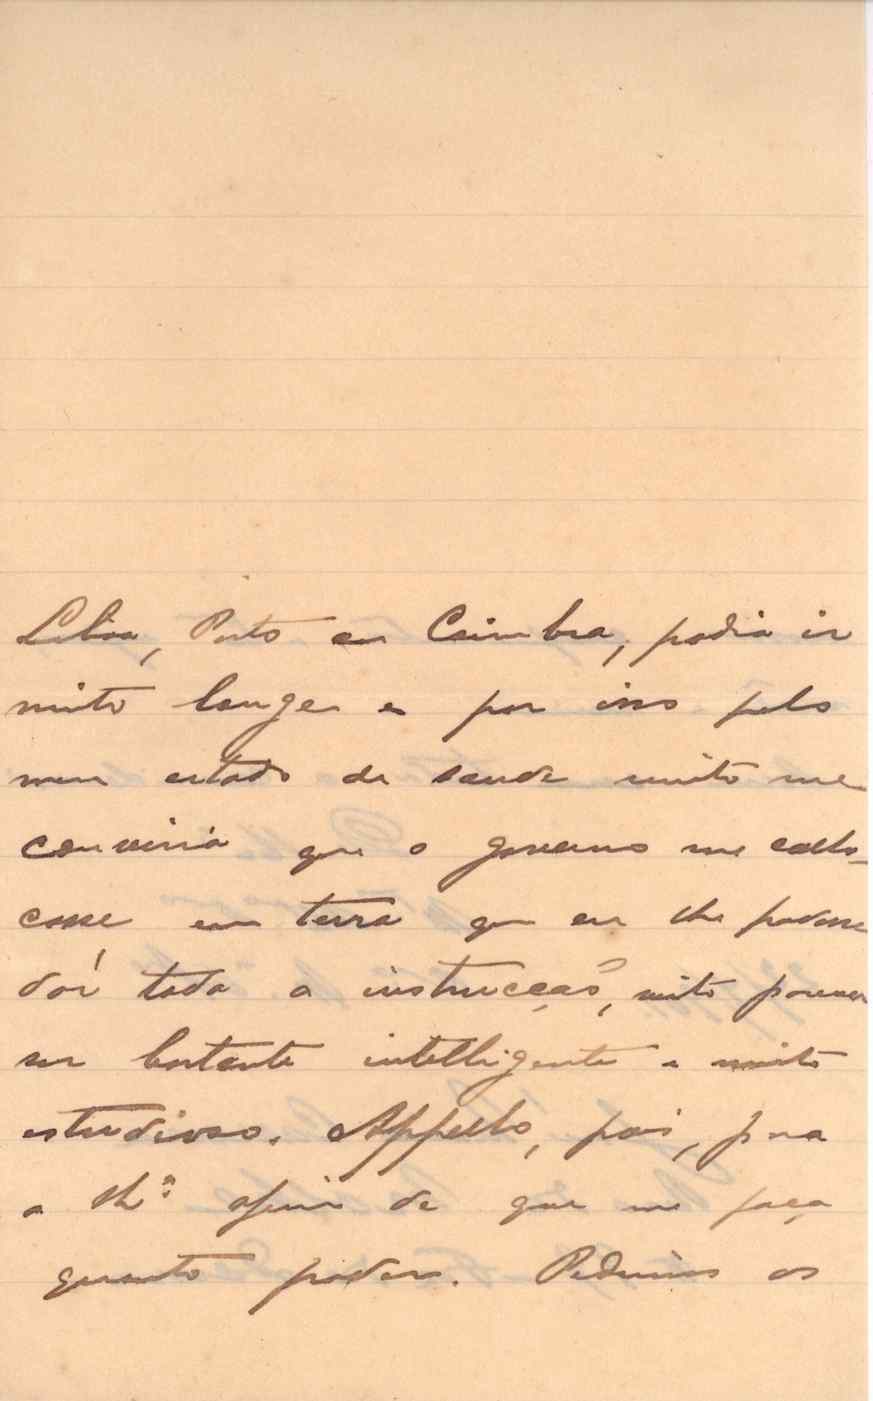 Lisboa, Porto ou Coimbra, podia ir
muito longe e por isso pelo
meu estado de saude muito me
conviria que o governo me collo-
casse em terra que eu lhe podesse
dar toda a instrucção, visto parecer
ser bastante intelligente e muito
estudioso. Appello, pois, para
a Mª afim de que me faça
quanto poder. Pedimos os